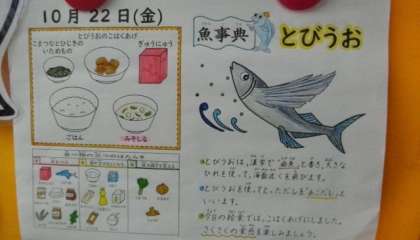 10月22日(金)
とびうおのこはくあげ
こまつなとひじきの
いためもの
ぎゅうにゅう
ごはん
みそしる
魚事典
とびうお
とびうおは、漢字で
と書き、大きな
ひれを使って、海面近くを飛びます。
とびうおを使ってとっただしを「あごだし」と
いいます。
今日の給食では、こはくあげにしました。
さくさくの食感を楽しみましょう。